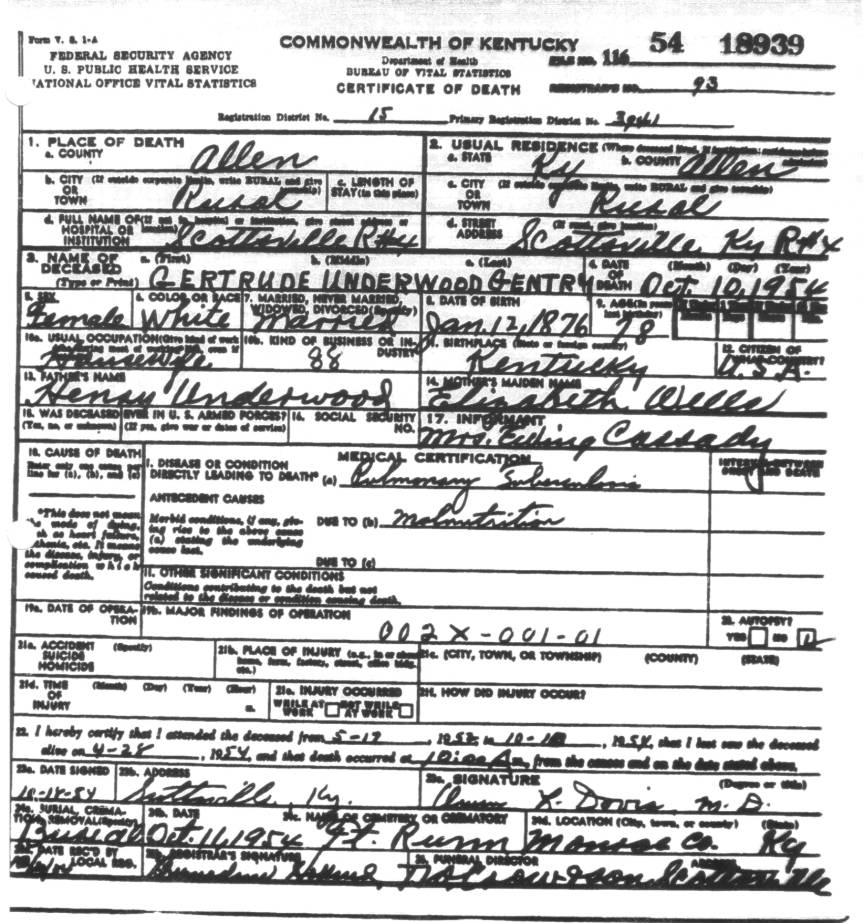 Form V. S. 1-A
FEDERAL SECURITY AGENCY
U. S. PUBLIC HEALTH SERVICE
NATIONAL OFFICE VITAL STATISTICS
COMMONWEALTH OF KENTUCKY
Department of Health
BUREAU OF VITAL STATISTICS
CERTIFICATE OF DEATH
FILE NO. 116 54 18939
REGISTRAR'S NO. 93
Registration District No. 15 Primary Registration District No.
1. PLACE OF DEATH
a. COUNTY Allen
2. USUAL RESIDENCE (Where deceased lived. If institution: residence before admission)
a. STATE Ky b. COUNTY Allen
b. CITY OR TOWN (If outside corporate limits, write RURAL and give township) Rural
c. LENGTH OF STAY (in this place)
c. CITY OR TOWN (If outside corporate limits, write RURAL and give township) Rural
d. FULL NAME OF HOSPITAL OR INSTITUTION (If not in hospital or institution, give street address or location) Scottsville R#4
d. STREET ADDRESS (If rural, give location) Scottsville Ky R#4
3. NAME OF DECEASED (Type or Print) a. (First) b. (Middle) c. (Last)
GERTRUDE UNDERWOOD GENTRY
4. DATE OF DEATH (Month) (Day) (Year) Oct 10, 1954
5. SEX Female
6. COLOR OR RACE White
7. MARRIED, NEVER MARRIED, WIDOWED, DIVORCED (Specify) Married
8. DATE OF BIRTH Jan. 12, 1876
9. AGE (In years last birthday) 78
10a. USUAL OCCUPATION (Give kind of work Housewife
10b. KIND OF BUSINESS OR INDUSTRY 88
11. BIRTHPLACE (State or foreign country) Kentucky
12. CITIZEN OF WHAT COUNTRY? U.S.A.
13. FATHER'S NAME Henry Underwood
14. MOTHER'S MAIDEN NAME Elizabeth Wells
15. WAS DECEASED EVER IN U. S. ARMED FORCES?
(Yes, no, or unknown) (If yes, give war or dates of service)
16. SOCIAL SECURITY NO.
17. INFORMANT Mrs. Ewing Cassady
18. CAUSE OF DEATH
Enter only one cause per line for (a), (b), and (c)
MEDICAL CERTIFICATION
INTERVAL BETWEEN ONSET AND DEATH
I. DISEASE OR CONDITION DIRECTLY LEADING TO DEATH* (a) Pulmonary Tuberculosis
*This does not mean the mode of dying, such as heart failure, asthenia, etc. It means the disease, injury, or complication which caused death.
ANTECEDENT CAUSES
Morbid conditions, if any, giving rise to the above cause (a) stating the underlying cause last.
DUE TO (b) Malnutrition
DUE TO (c)
II. OTHER SIGNIFICANT CONDITIONS
Conditions contributing to the death but not related to the disease or condition causing death.
19a. DATE OF OPERATION
19b. MAJOR FINDINGS OF OPERATION
002X-001-01
20. AUTOPSY?
YES NO
21a. ACCIDENT SUICIDE HOMICIDE (Specify)
21b. PLACE OF INJURY (e.g., in or about home, farm, factory, street, office bldg. etc.)
21c. (CITY, TOWN, OR TOWNSHIP) (COUNTY) (STATE)
21d. TIME OF INJURY (Month) (Day) (Year) (Hour) m.
21e. INJURY OCCURRED
WHILE AT WORK NOT WHILE AT WORK
21f. HOW DID INJURY OCCUR?
22. I hereby certify that I attended the deceased from 5-17, to 10-10, 1954, that I last saw the deceased
alive on 4-28, 1954, and that death occurred at 10:00 A m., from the causes and on the date stated above.
23a. DATE SIGNED 10-18-54
23b. ADDRESS Scottsville, Ky.
23c. SIGNATURE (Degree or title) Davis M.D.
24a. BURIAL, CREMATION, REMOVAL (Specify) Burial
24b. DATE Oct. 11, 1954
24c. NAME OF CEMETERY OR CREMATORY Ft. Runn
24d. LOCATION (City, town, or county) (State) Monroe Co. Ky
25a. DATE REC'D BY LOCAL REG.
25b. REGISTRAR'S SIGNATURE
26. FUNERAL DIRECTOR ADDRESS Scottsville